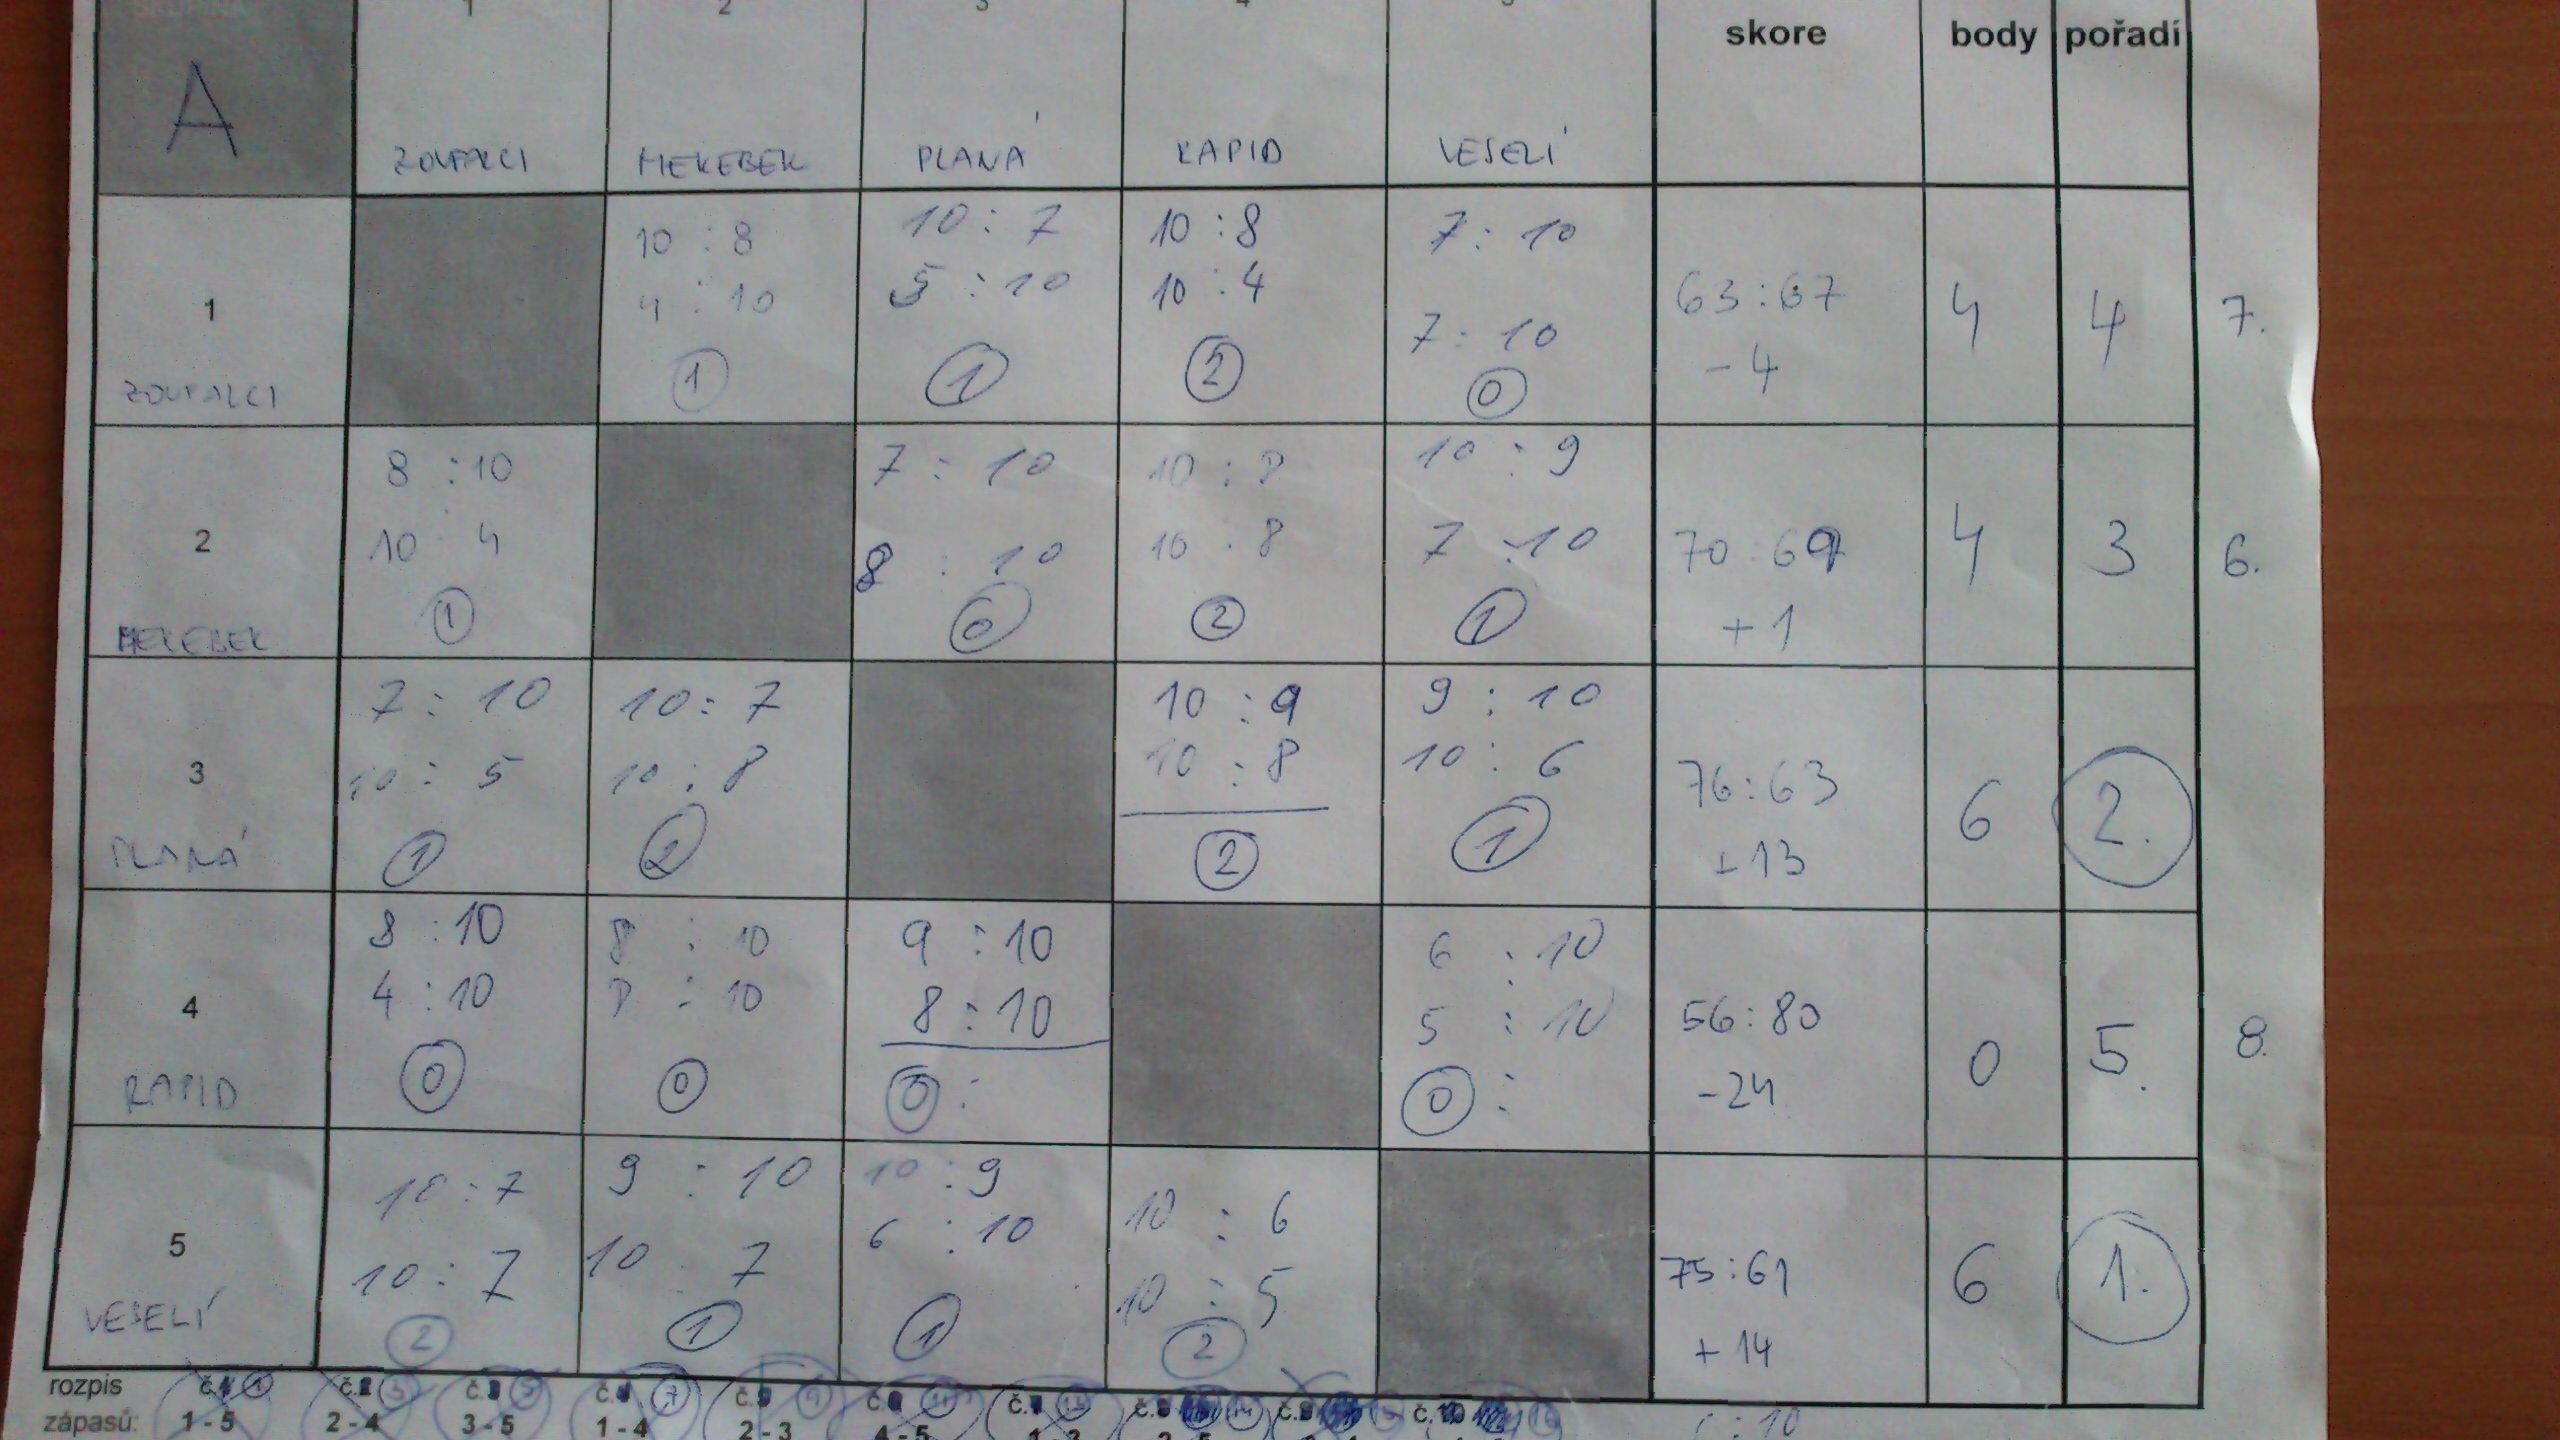 SKUPINA 1 2 3 4 5 skore body pořadí
A
ZOUFALCI MEKEBEK PLANÁ RAPID VESELÍ
1
ZOUFALCI
10 : 8
4 : 10
1
10 : 7
5 : 10
1
10 : 8
10 : 4
2
7 : 10
7 : 10
0
63 : 67
- 4
4
4
7.
2
MEKEBEK
8 : 10
10 : 4
1
7 : 10
8 : 10
0
10 : 8
10 : 8
2
10 : 9
7 : 10
1
70 : 69
+ 1
4
3
6.
3
PLANÁ
7 : 10
10 : 5
1
10 : 7
10 : 8
2
10 : 9
10 : 8
2
9 : 10
10 : 6
1
76 : 63
+ 13
6
2.
4
RAPID
8 : 10
4 : 10
0
8 : 10
8 : 10
0
9 : 10
8 : 10
0 :
6 : 10
5 : 10
0 :
56 : 80
- 24
0
5.
8.
5
VESELÍ
10 : 7
10 : 7
2
9 : 10
10 7
1
10 : 9
6 : 10
1
10 : 6
10 : 5
2
75 : 61
+ 14
6
1.
rozpis
zápasů: 1 - 5 2 - 4 3 - 5 1 - 4 2 - 3 4 - 5 1 - 3
: 10